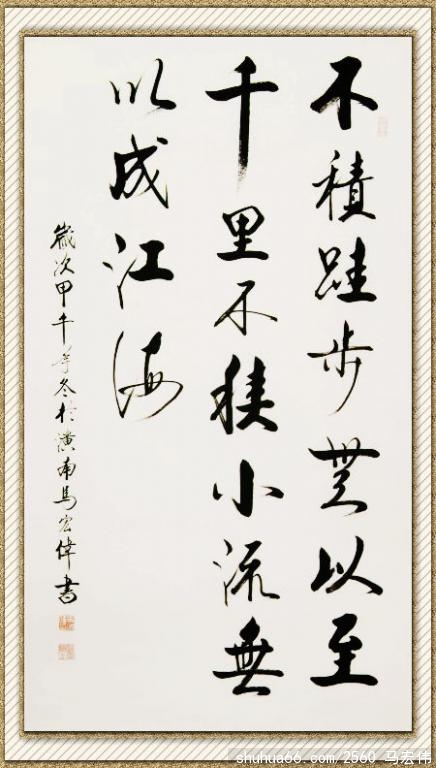 不積跬步無以至
千里不積小流無
以成江海
歲次甲午年冬於南馬宏偉書
shuhua66.com/2560 马宏伟